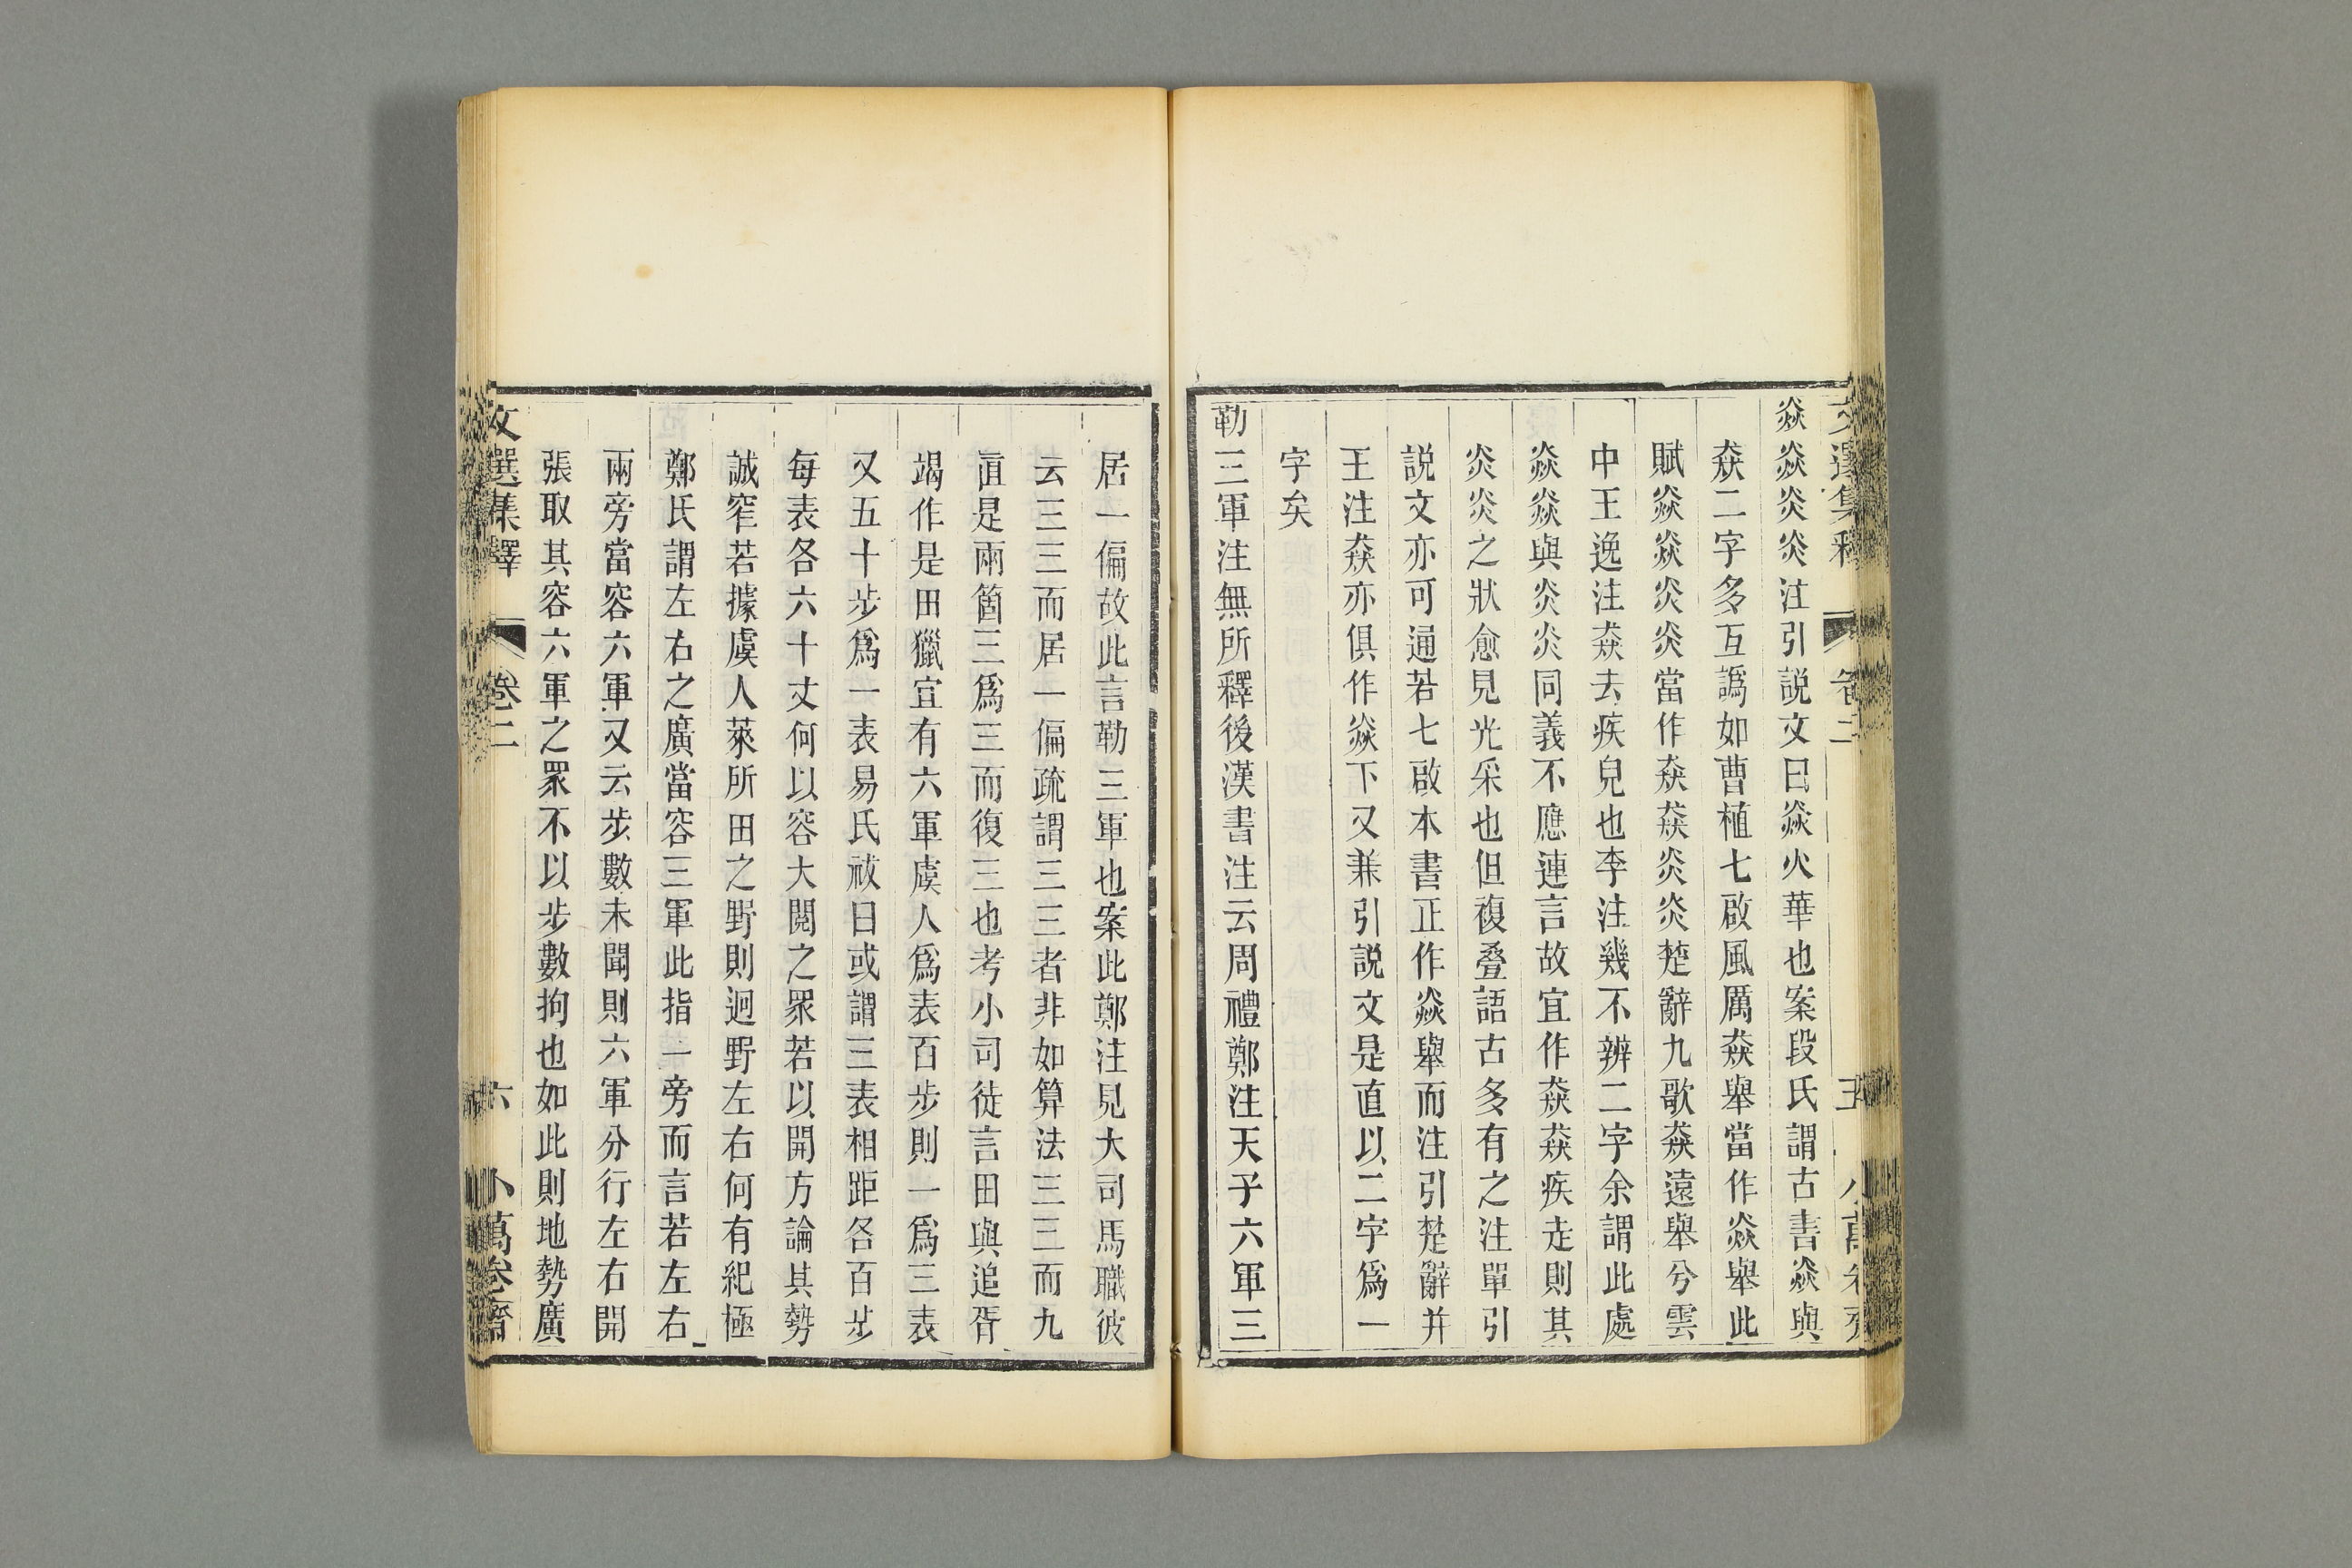 文選集釋 卷二 五 小萬卷齋
焱焱炎炎注引説文曰焱火華也案段氏謂古書焱與
猋二字多互譌如曹植七啟風厲猋舉當作焱舉此
賦焱焱炎炎當作猋猋炎炎楚辭九歌猋遠舉兮雲
中王逸注猋去疾皃也李注幾不辨二字余謂此處
焱焱與炎炎同義不應連言故宜作猋猋疾走則其
炎炎之狀愈見光采也但複疊語古多有之注單引
説文亦可通若七啟本書正作焱舉而注引楚辭并
王注猋亦俱作焱下又兼引説文是直以二字爲一
字矣
勒三軍注無所釋後漢書注云周禮鄭注天子六軍三
居一偏故此言勒三軍也案此鄭注見大司馬職彼
云三三而居一偏疏謂三三者非如算法三三而九
直是兩箇三爲三而復三也考小司徒言田與追胥
竭作是田獵宜有六軍虞人爲表百步則一爲三表
又五十步爲一表易氏祓曰或謂三表相距各百步
每表各六十丈何以容大閱之眾若以開方論其勢
誠窄若據虞人萊所田之野則迥野左右何有紀極
鄭氏謂左右之廣當容三軍此指一旁而言若左右
兩旁當容六軍又云步數未聞則六軍分行左右開
張取其容六軍之眾不以步數拘也如此則地勢廣
文選集釋 卷二 六 小萬卷齋